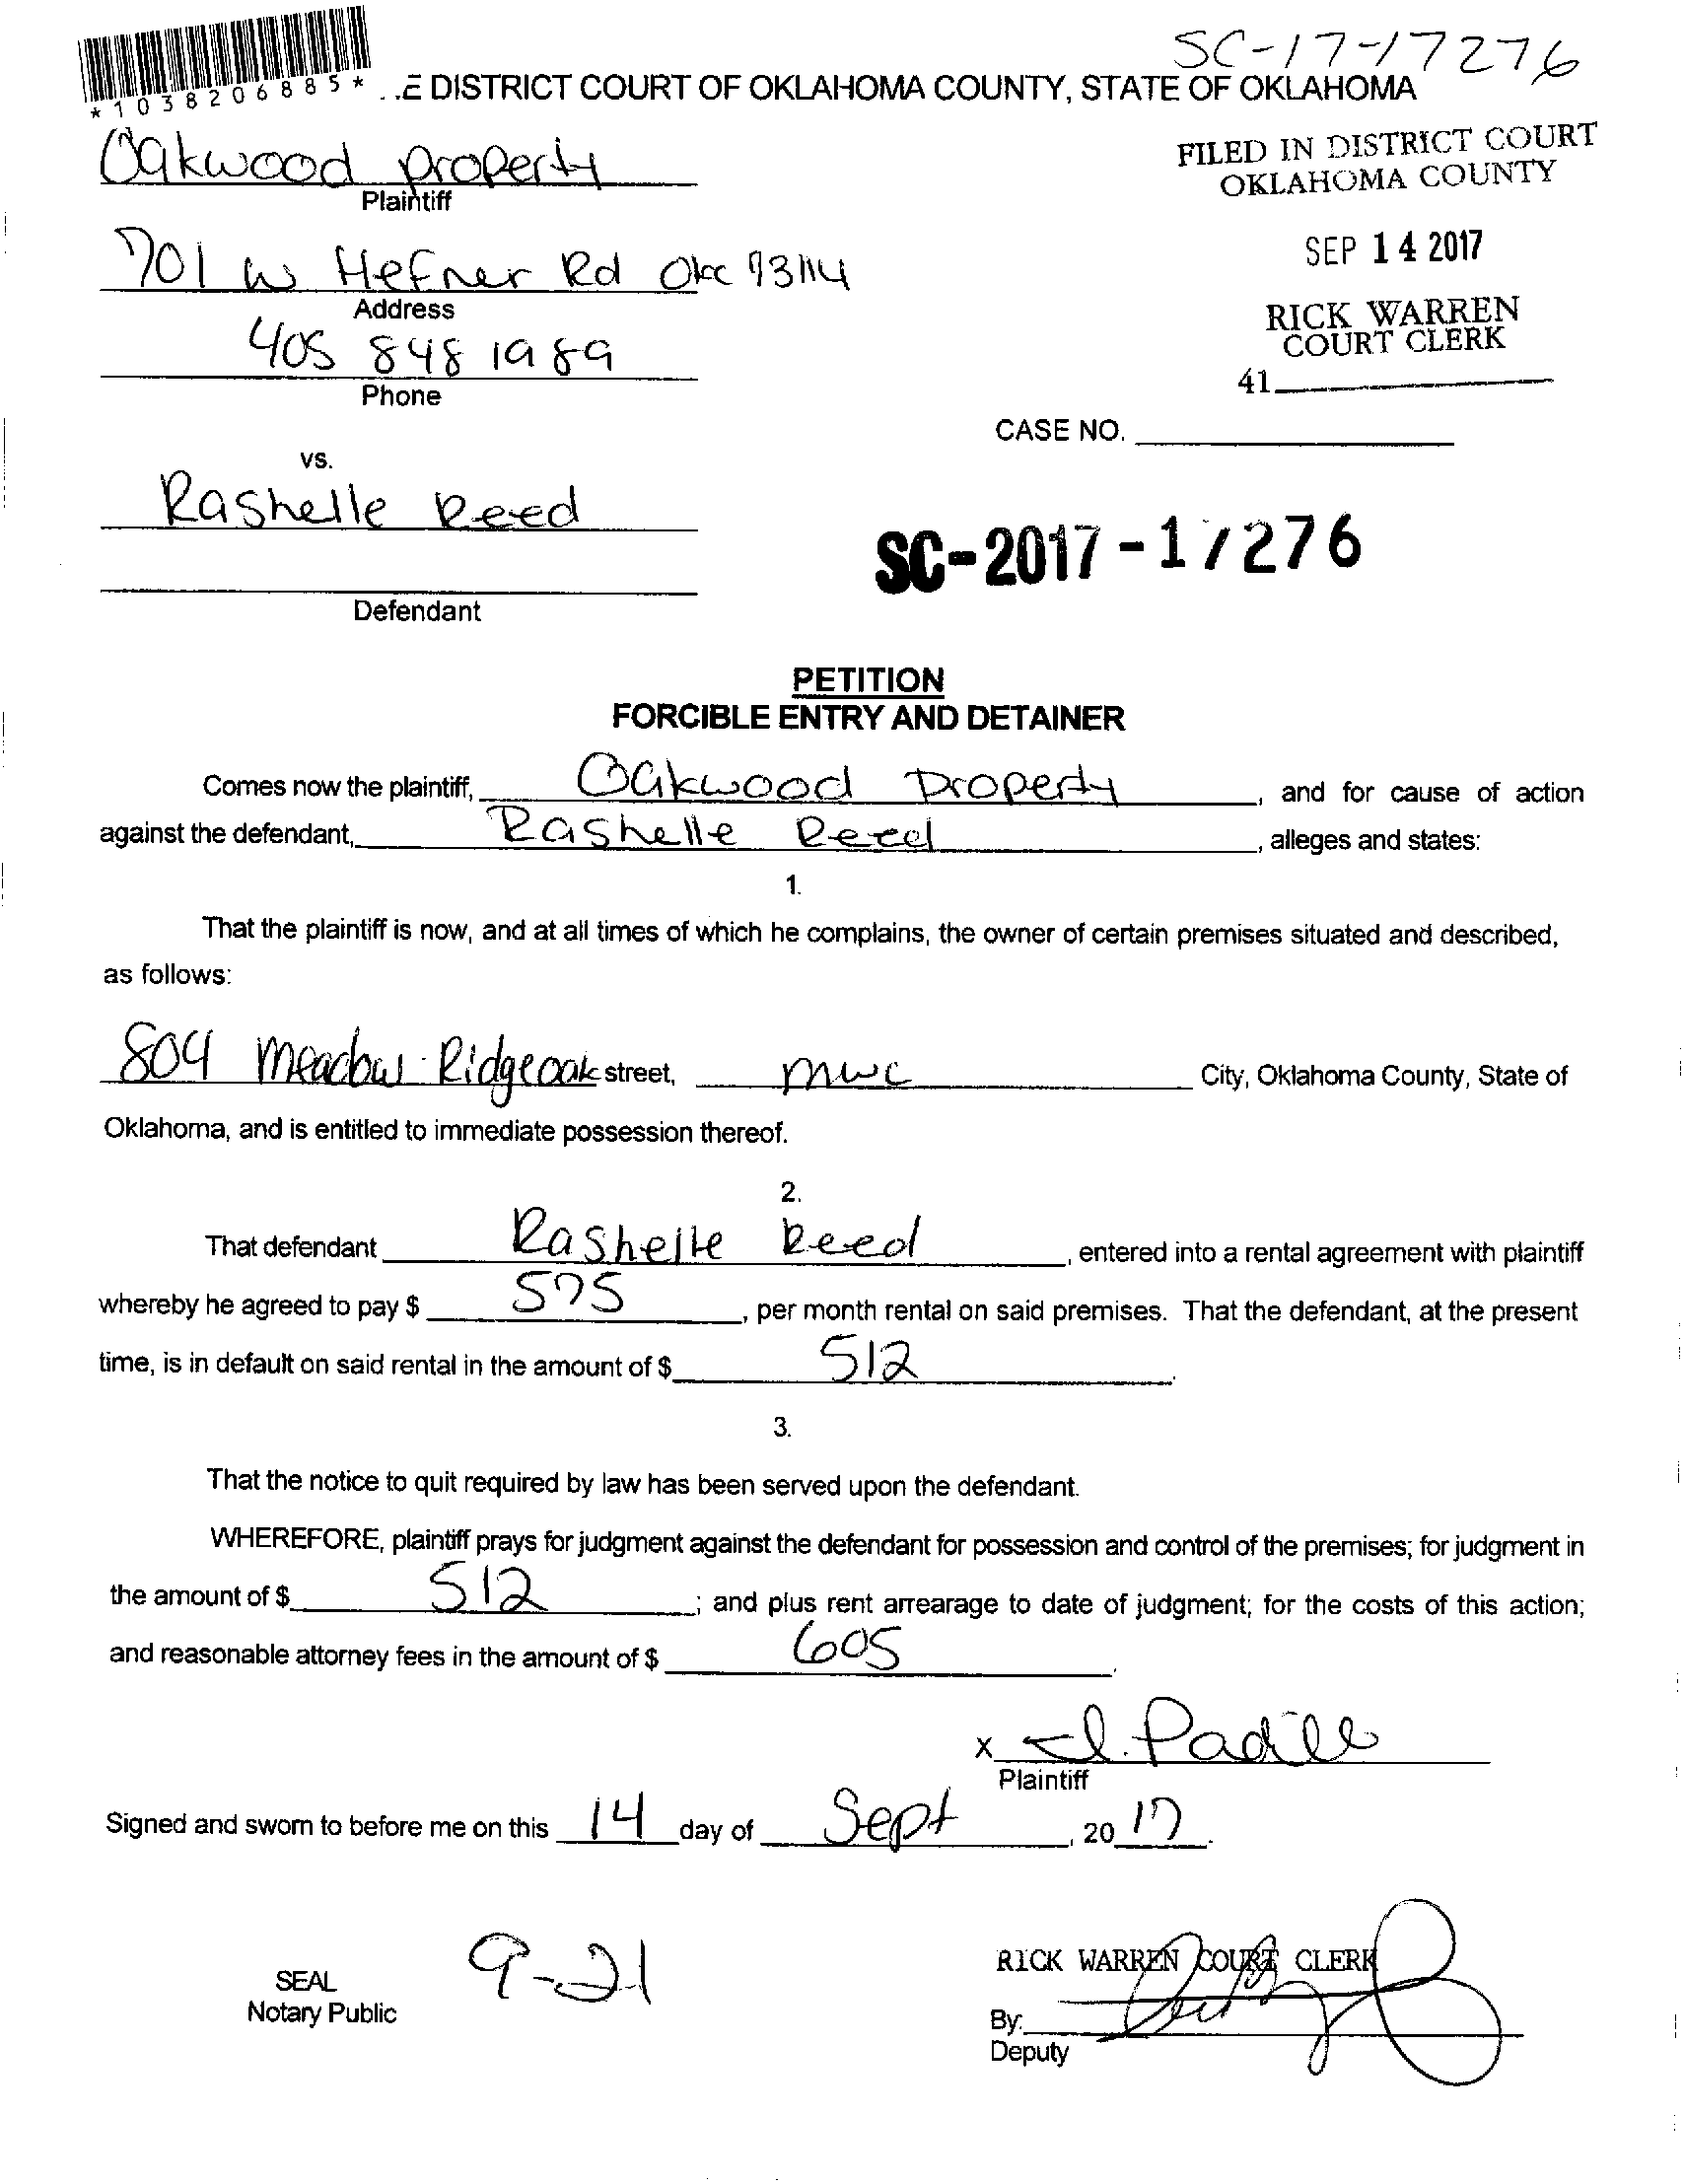 SC-17-17276
*1038206885* . .E DISTRICT COURT OF OKLAHOMA COUNTY, STATE OF OKLAHOMA
Oakwood property
Plaintiff
FILED IN DISTRICT COURT
OKLAHOMA COUNTY
SEP 14 2017
RICK WARREN
COURT CLERK
41
701 W Hefner Rd Okc 73114
Address
405 848 1989
Phone
CASE NO.
vs.
Rashelle Reed
SC-2017-17276
Defendant
PETITION
FORCIBLE ENTRY AND DETAINER
Comes now the plaintiff, Oakwood property, and for cause of action
against the defendant, Rashelle Reed, alleges and states:
1.
That the plaintiff is now, and at all times of which he complains, the owner of certain premises situated and described,
as follows:
804 Meadow Ridgeoak street, mwc City, Oklahoma County, State of
Oklahoma, and is entitled to immediate possession thereof.
2.
That defendant Rashelle Reed, entered into a rental agreement with plaintiff
whereby he agreed to pay $ 575, per month rental on said premises. That the defendant, at the present
time, is in default on said rental in the amount of $ 512.
3.
That the notice to quit required by law has been served upon the defendant.
WHEREFORE, plaintiff prays for judgment against the defendant for possession and control of the premises; for judgment in
the amount of $ 512; and plus rent arrearage to date of judgment; for the costs of this action;
and reasonable attorney fees in the amount of $ 605.
x J. Padilla
Plaintiff
Signed and sworn to before me on this 14 day of Sept, 20 17.
SEAL
Notary Public
9-21
RICK WARREN COURT CLERK
By:
Deputy